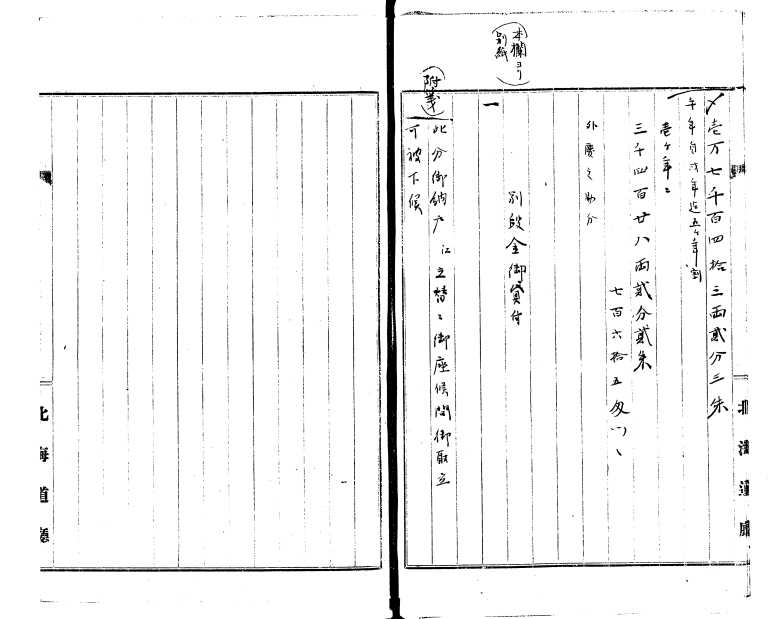 〆壱万七千百四拾三両貳分三朱
午年自戌年迄五ヶ年割
壱ヶ年ニ
三千四百廿八両貳分貳朱
七百六拾五匁
外慶之助分
(本欄ヨリ別紙)
別段金御貸付
一
(附箋)
此分御納戸江立替ニ御座候間御取立
可被下候
北海道廳
北海道廳